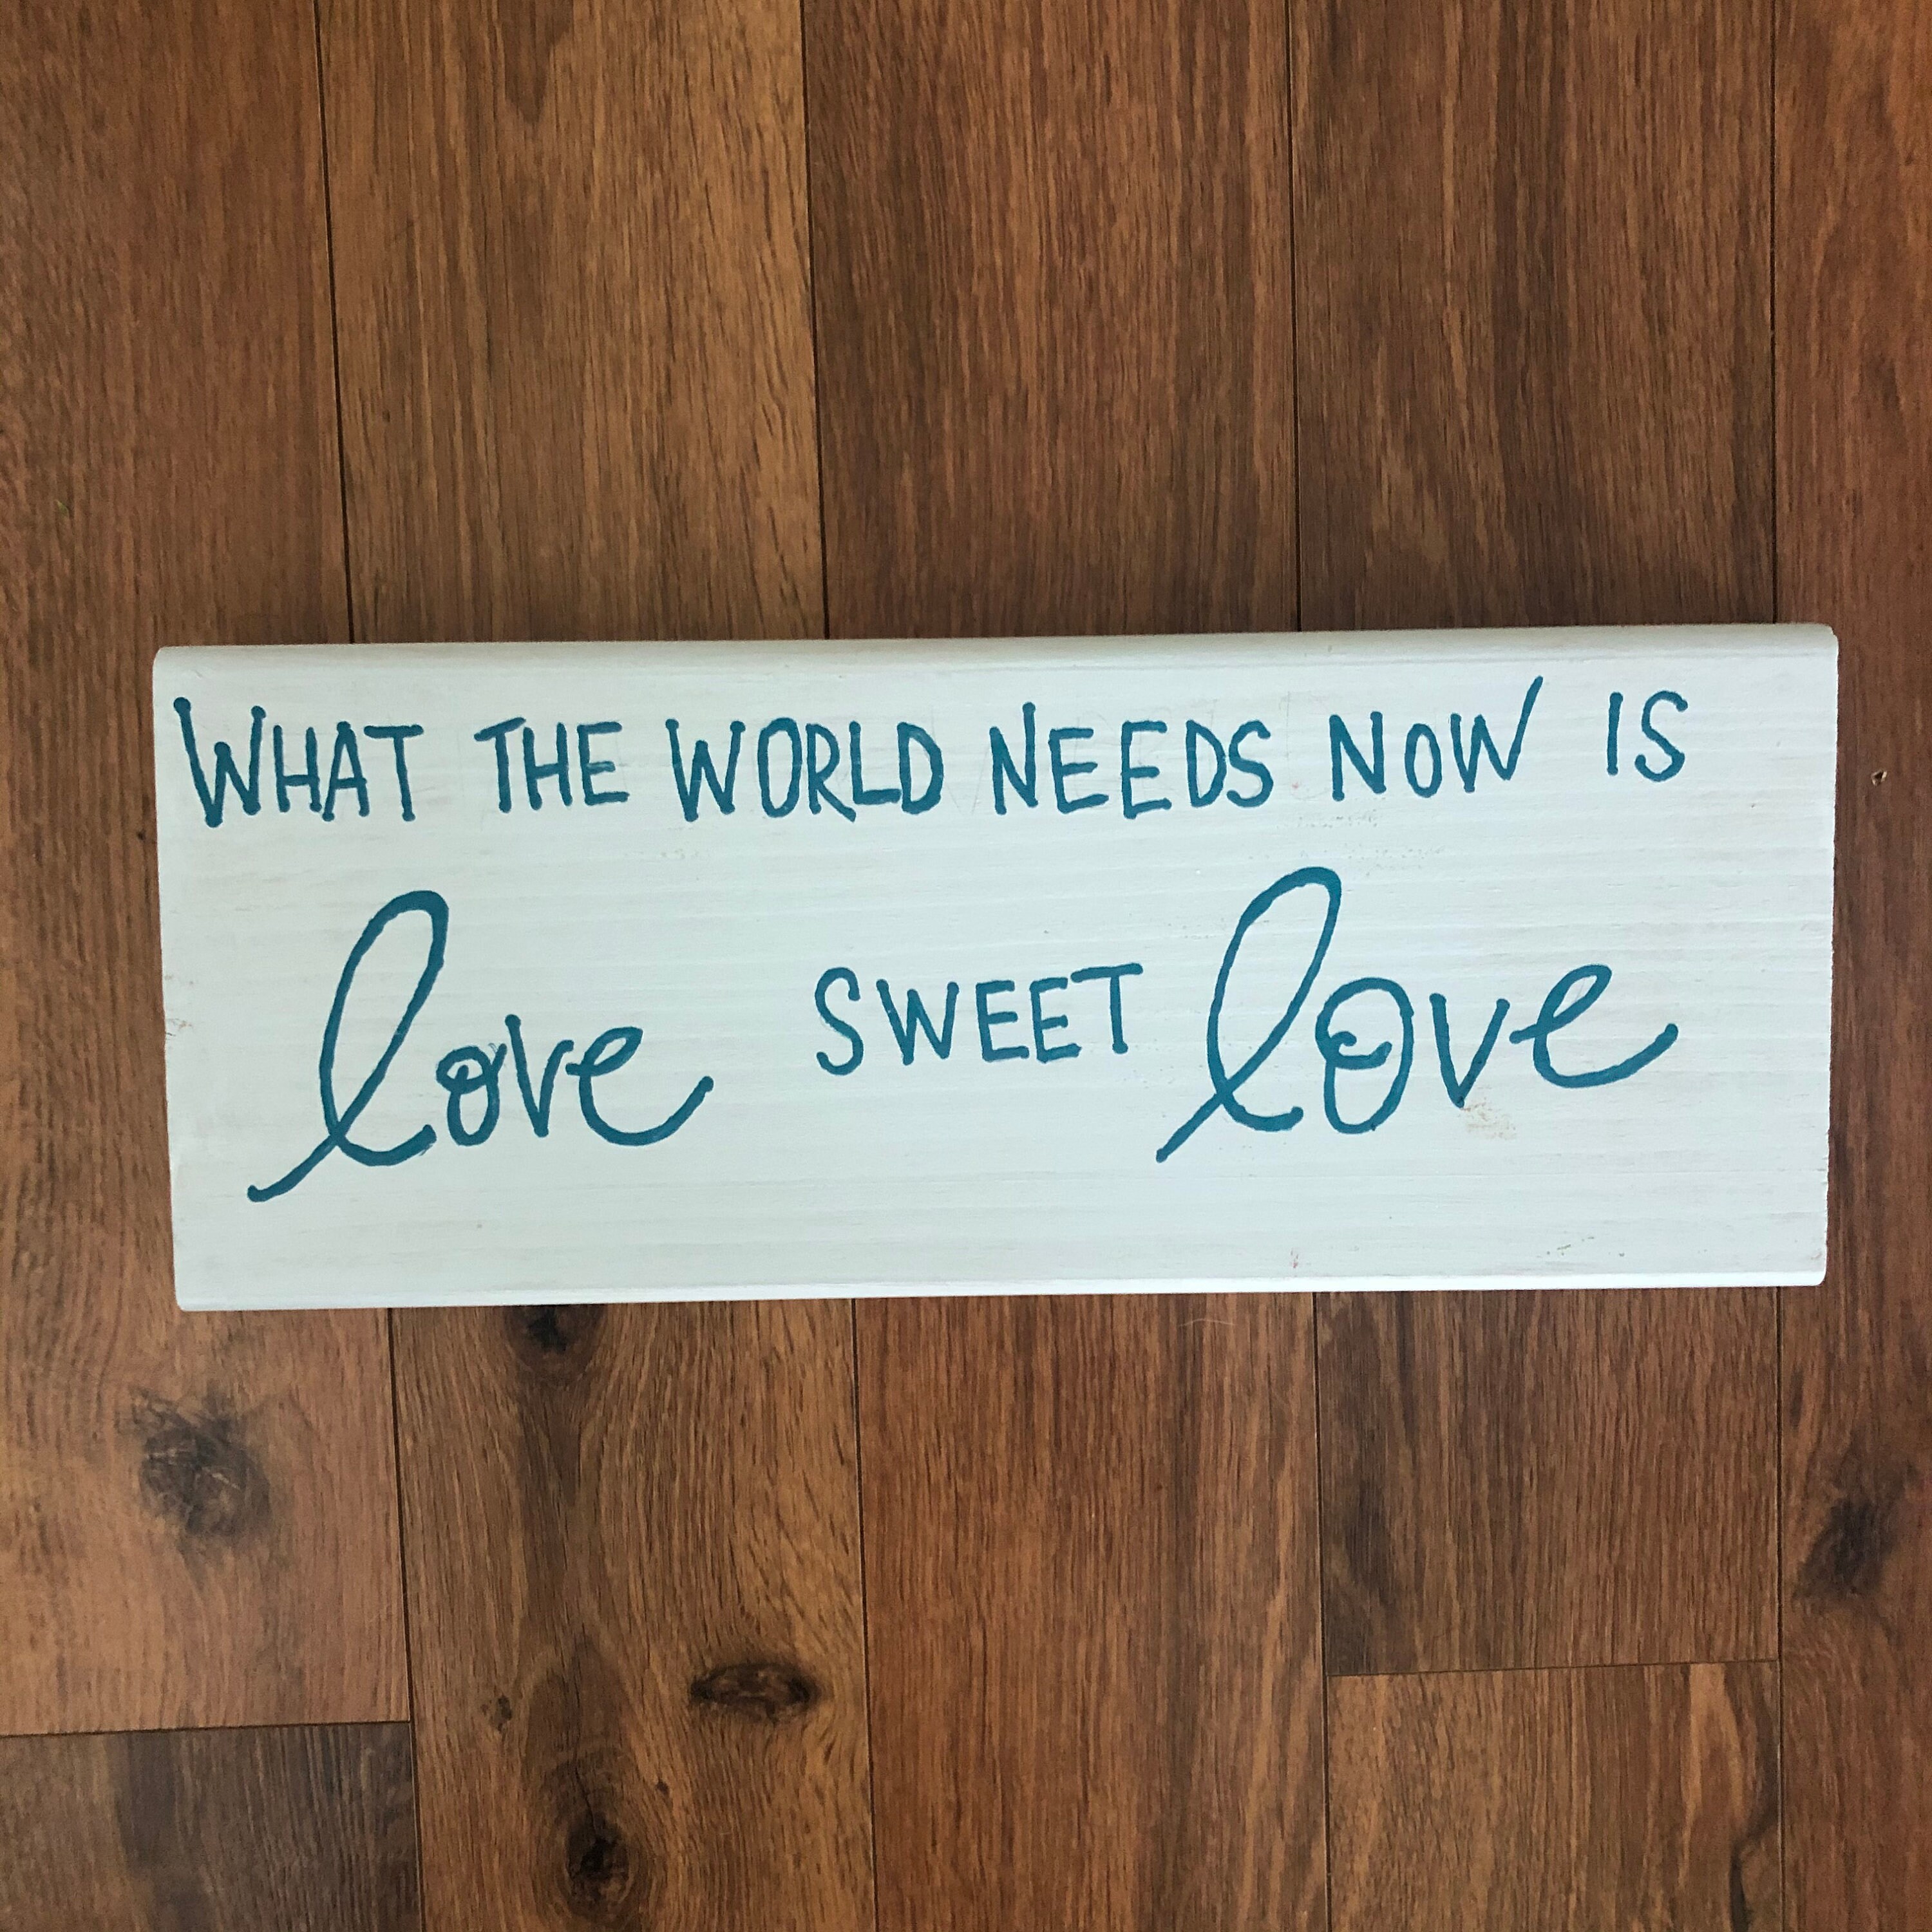 WHAT THE WORLD NEEDS NOW IS
love SWEET love